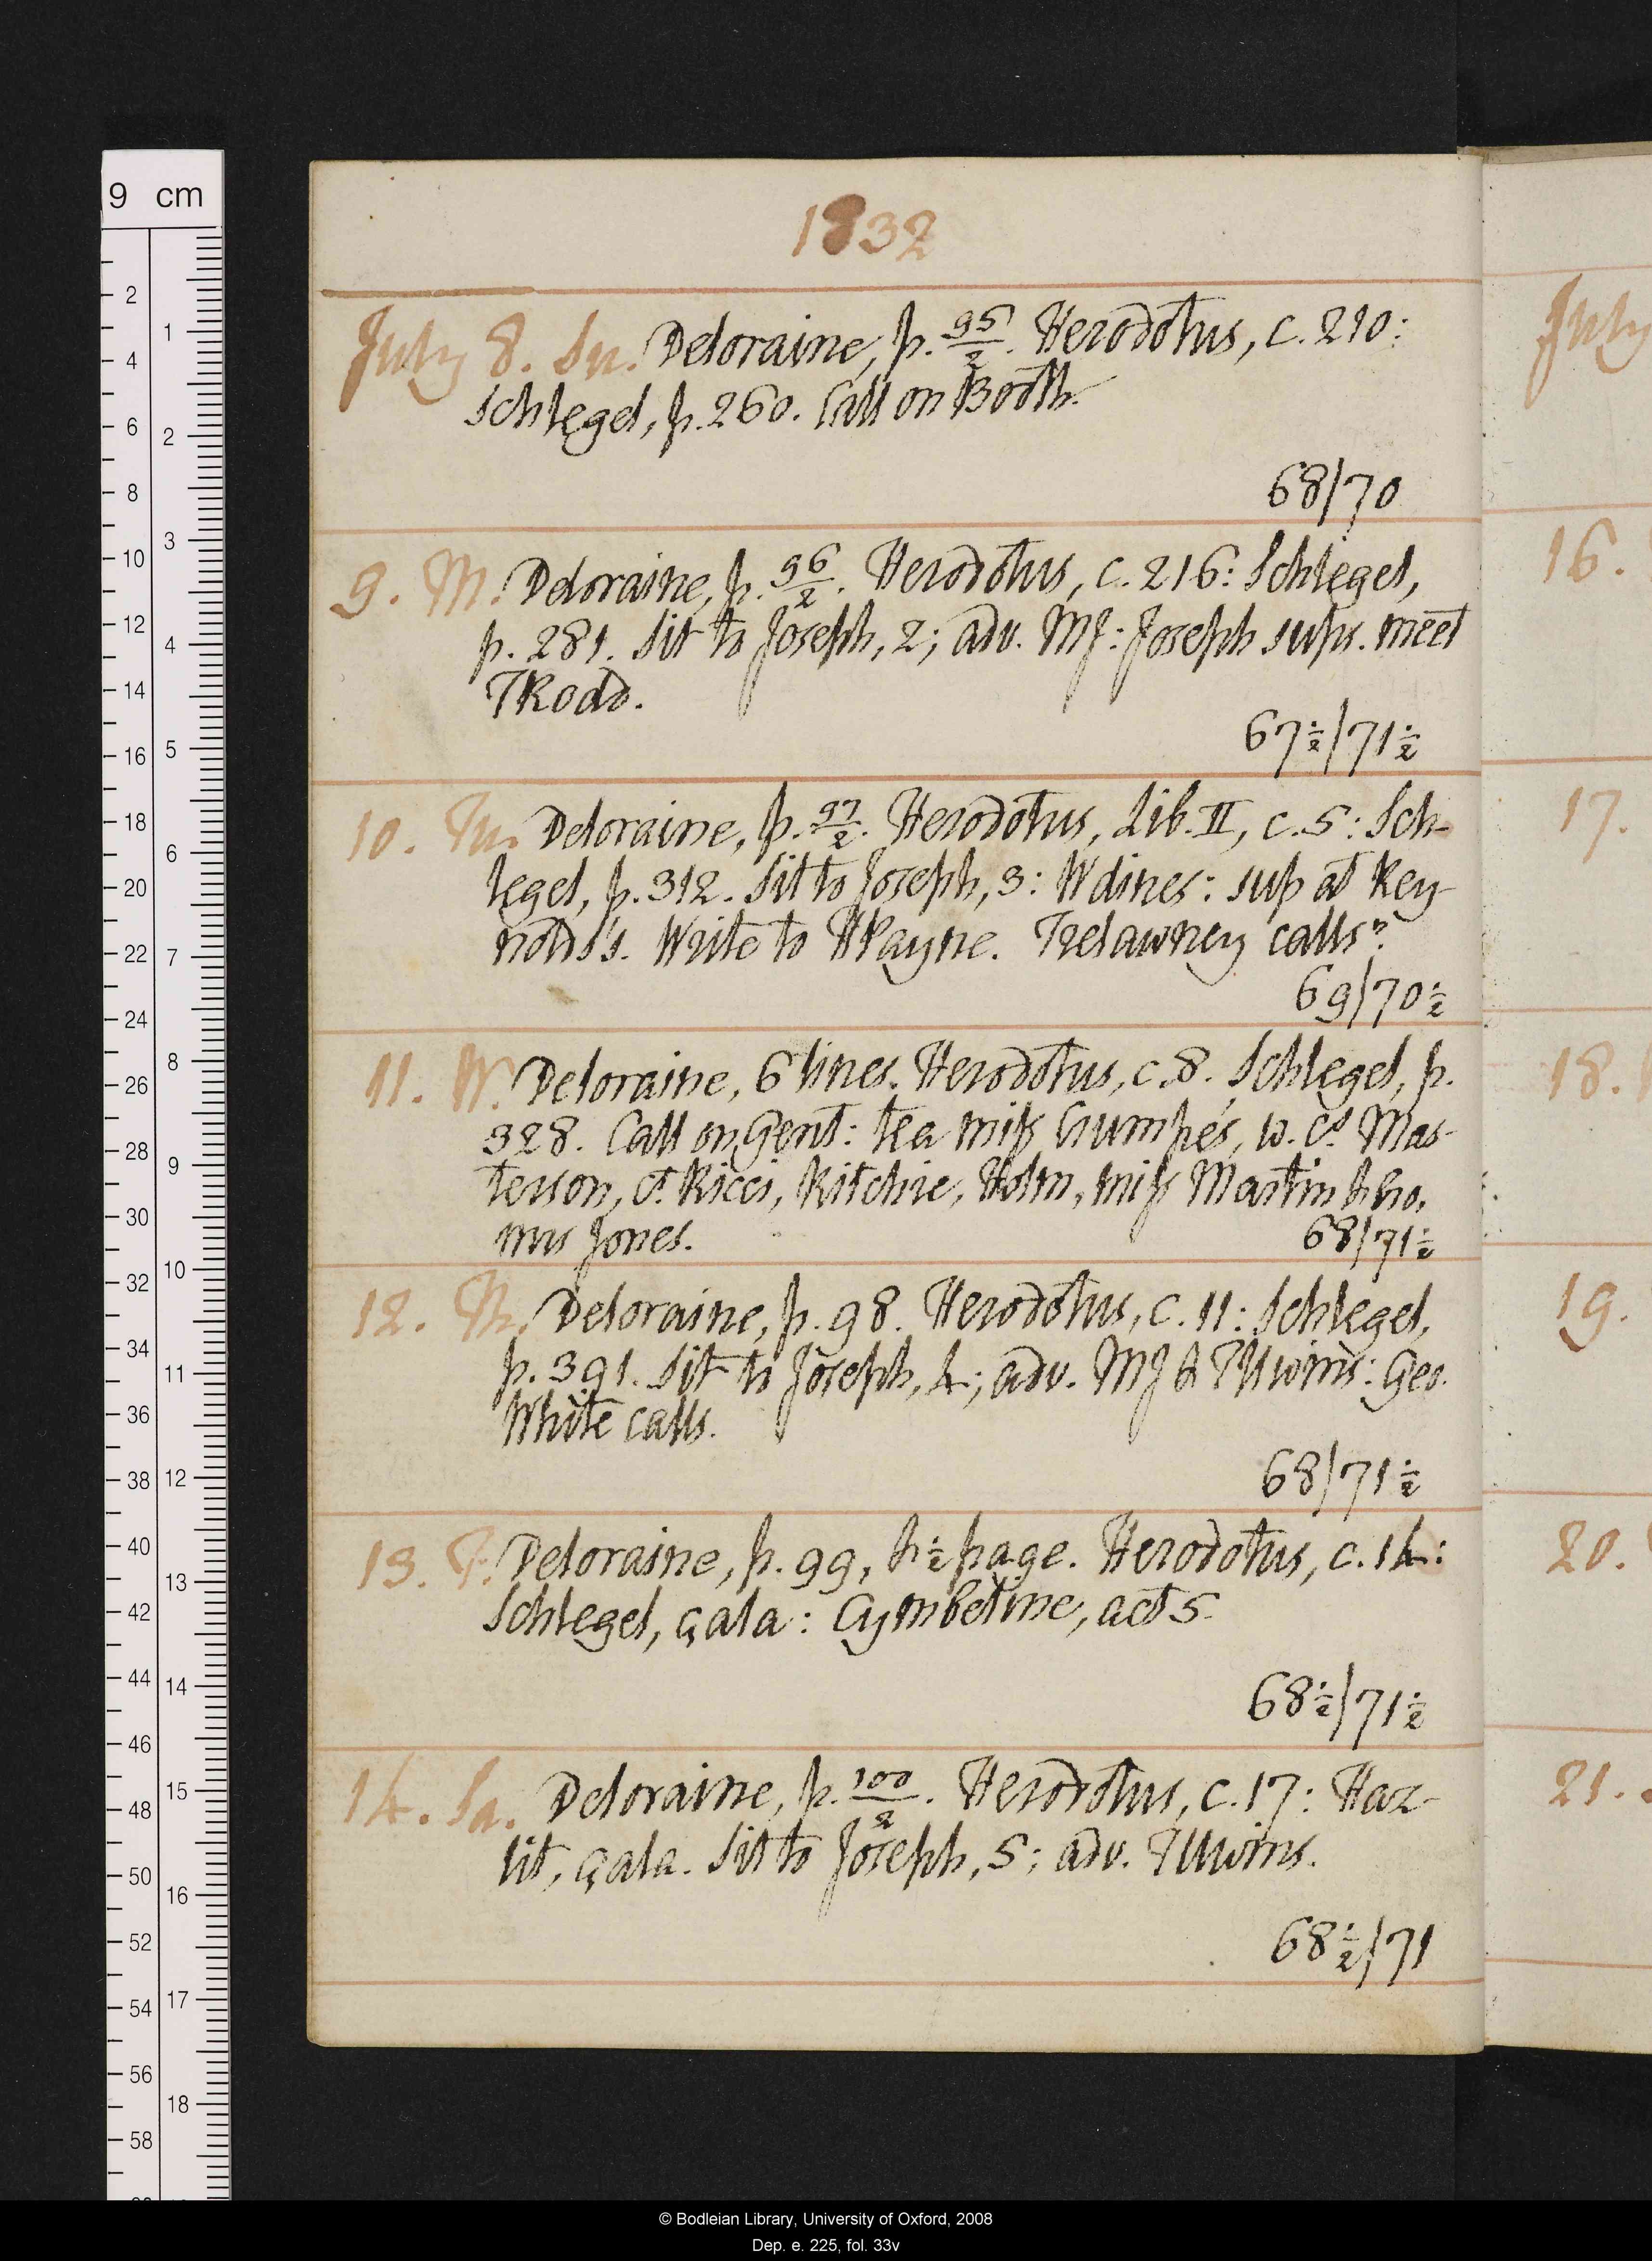 1832
July 8. Su. Deloraine, p. 95/2. Herodotus, c. 210:
Schlegel, p. 260. Call on Booth.
68/70
9. M. Deloraine, p. 96/2. Herodotus, c. 216: Schlegel,
p. 281. Sit to Joseph, 2; adv. MJ: Joseph sups. meet
TRodd.
67½/71½
10. Tu. Deloraine, p. 97/2. Herodotus, Lib. II, c. 5: Sch-
legel, p. 312. Sit to Joseph, 3: W dines: sup at Rey-
nolds's. Write to WPayne. Trelawney calls?
69/70½
11. W. Deloraine, 6 lines. Herodotus, c. 8. Schlegel, p.
328. Call on Gent: tea miss Crumpe's, w. Cs Mas-
terson, Ct Ricci, Ritchie, Holm, miss Martin & bro,
mrs Jones.
68/71½
12. Th. Deloraine, p. 98. Herodotus, c. 11: Schlegel,
p. 391. Sit to Joseph, 4; adv. MJ & TUwins: Geo.
White calls.
68/71½
13. F. Deloraine, p. 99, & ½ page. Herodotus, c. 14:
Schlegel, çala: Cymbeline, act 5.
68½/71½
14. Sa. Deloraine, p. 100/2. Herodotus, c. 17: Haz-
lit, çala. Sit to Joseph, 5; adv. TUwins.
68½/71
July
16.
17.
18.
19.
20.
21.
9 cm
2
4
6
8
10
12
14
16
18
20
22
24
26
28
30
32
34
36
38
40
42
44
46
48
50
52
54
56
58
1
2
3
4
5
6
7
8
9
10
11
12
13
14
15
16
17
18
© Bodleian Library, University of Oxford, 2008
Dep. e. 225, fol. 33v